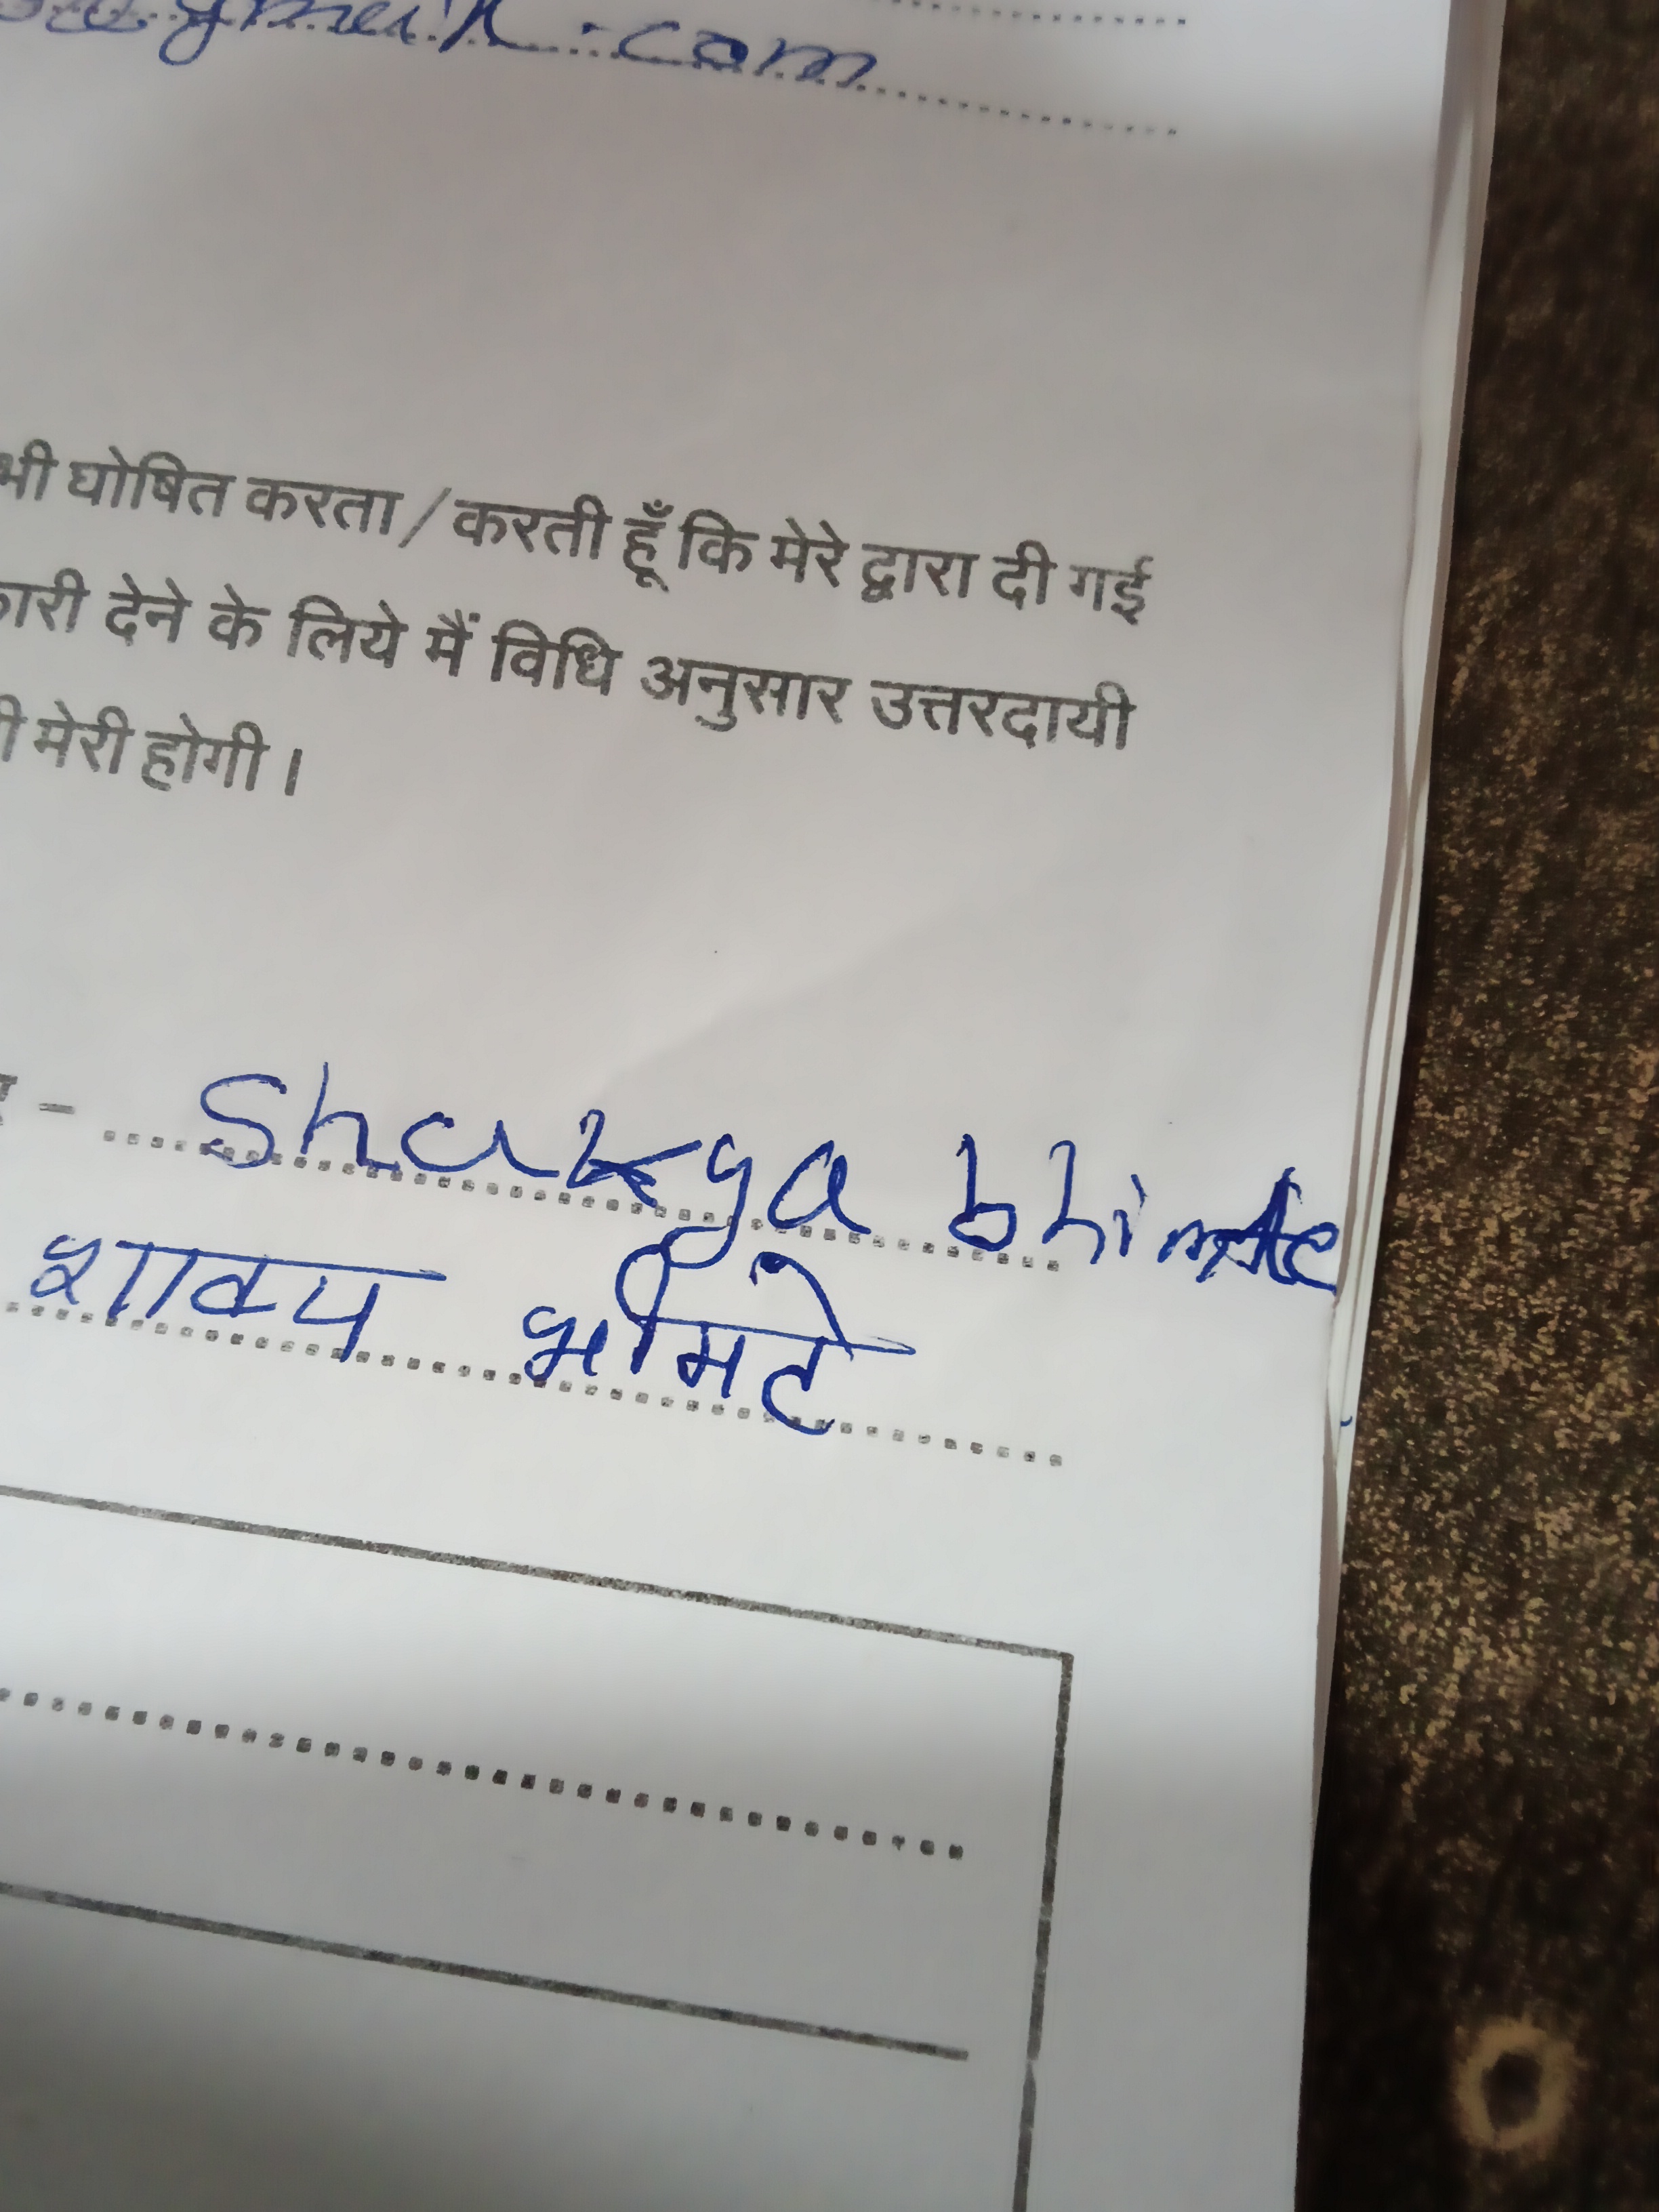 gmail.com
भी घोषित करता / करती हूँ कि मेरे द्वारा दी गई
देने के लिये मैं विधि अनुसार उत्तरदायी
मेरी होगी।
- Shakya bhimte
शाक्य भीमटे